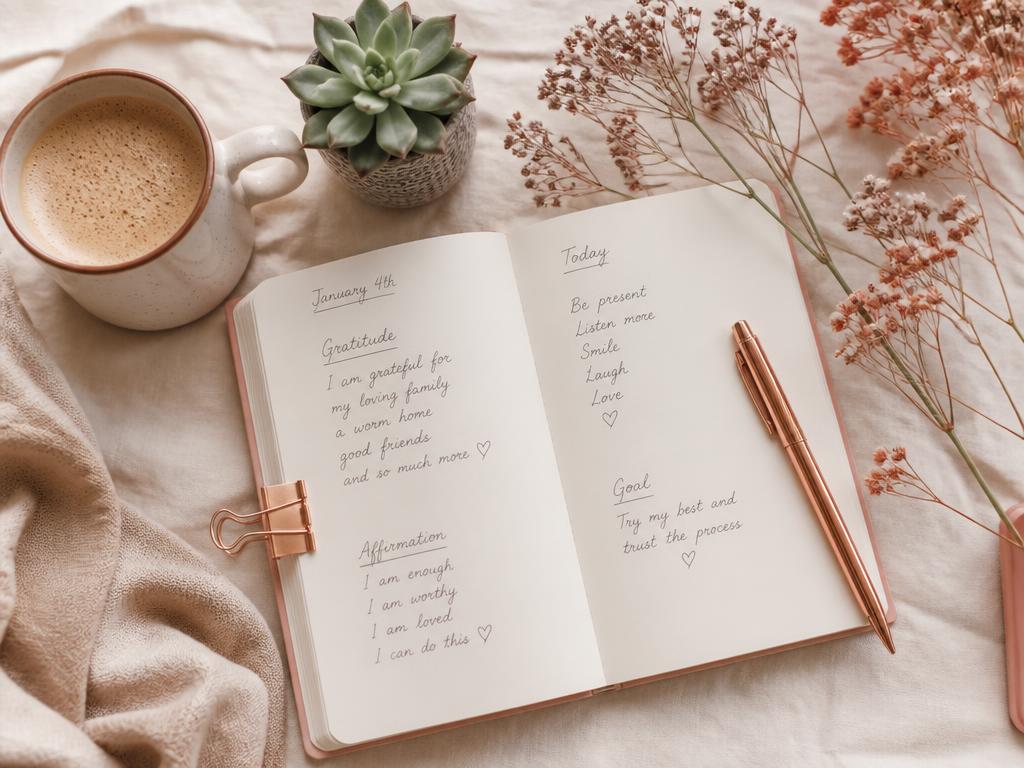 January 4th
Gratitude
I am grateful for
my loving family
a worm home
good friends
and so much more ♡
Affirmation
I am enough
I am worthy
I am loved
I can do this ♡
Today
Be present
Listen more
Smile
Laugh
Love
♡
Goal
Try my best and
trust the process
♡